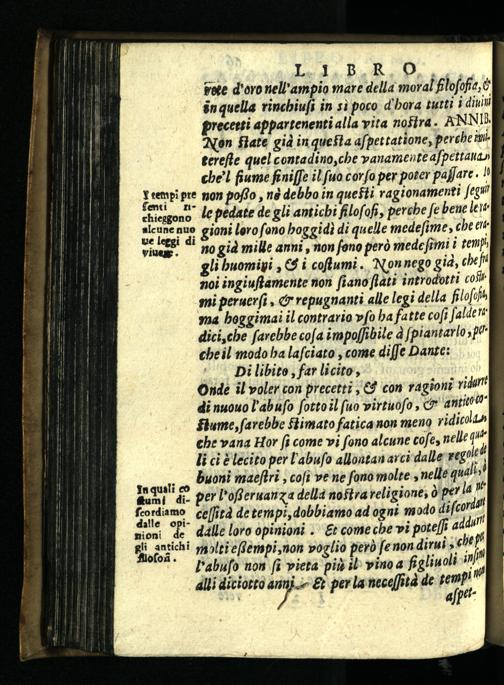 LIBRO
rete d'oro nell'ampio mare della moral filosofia, &
in quella rinchiusi in sì poco d'hora tutti i divini
precetti appartenenti alla vita nostra. ANNIB.
Non state già in questa aspettatione, perche imi-
tereste quel contadino, che vanamente aspettaua,
che'l fiume finisse il suo corso per poter passare. Io
non posso, nè debbo in questi ragionamenti seguir
le pedate de gli antichi filosofi, perche se bene le ra-
gioni loro sono hoggidì di quelle medesime, che era-
no già mille anni, non sono però medesimi i tempi,
gli huomini, & i costumi. Non nego già, che fra
noi ingiustamente non siano stati introdotti costu-
mi peruersi, & repugnanti alle legi della filosofia,
ma hoggimai il contrario vso ha fatte così salde ra-
dici, che sarebbe cosa impossibile à spiantarlo, per-
che il modo ha lasciato, come disse Dante:
Di libito, far licito,
Onde il voler con precetti, & con ragioni ridurre
di nuouo l'abuso sotto il suo virtuoso, & antico co-
stume, sarebbe stimato fatica non meno ridicola,
che vana Hor sì come vi sono alcune cose, nelle qua-
li ci è lecito per l'abuso allontanarci dalle regole de
buoni maestri, così ve ne sono molte, nelle quali, ò
per l'osseruanza della nostra religione, ò per la ne-
cessità de tempi, dobbiamo ad ogni modo discordare
dalle loro opinioni. Et come che vi potessi addurre
molti essempi, non voglio però se non dirui, che per
l'abuso non si vieta più il vino a figliuoli insino
alli diciotto anni. Et per la necessità de tempi non
aspet-
I tempi pre
senti ri-
chieggono
alcune nuo
ue leggi di
viuere.
In quali co
stumi di-
scordiamo
dalle opi-
nioni de
gli antichi
filosofi.